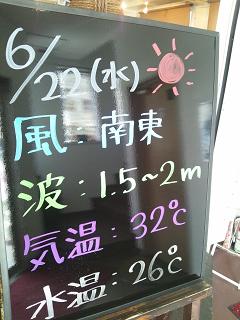 6/22(水)
風:南東
波:1.5~2m
気温:32℃
水温:26℃